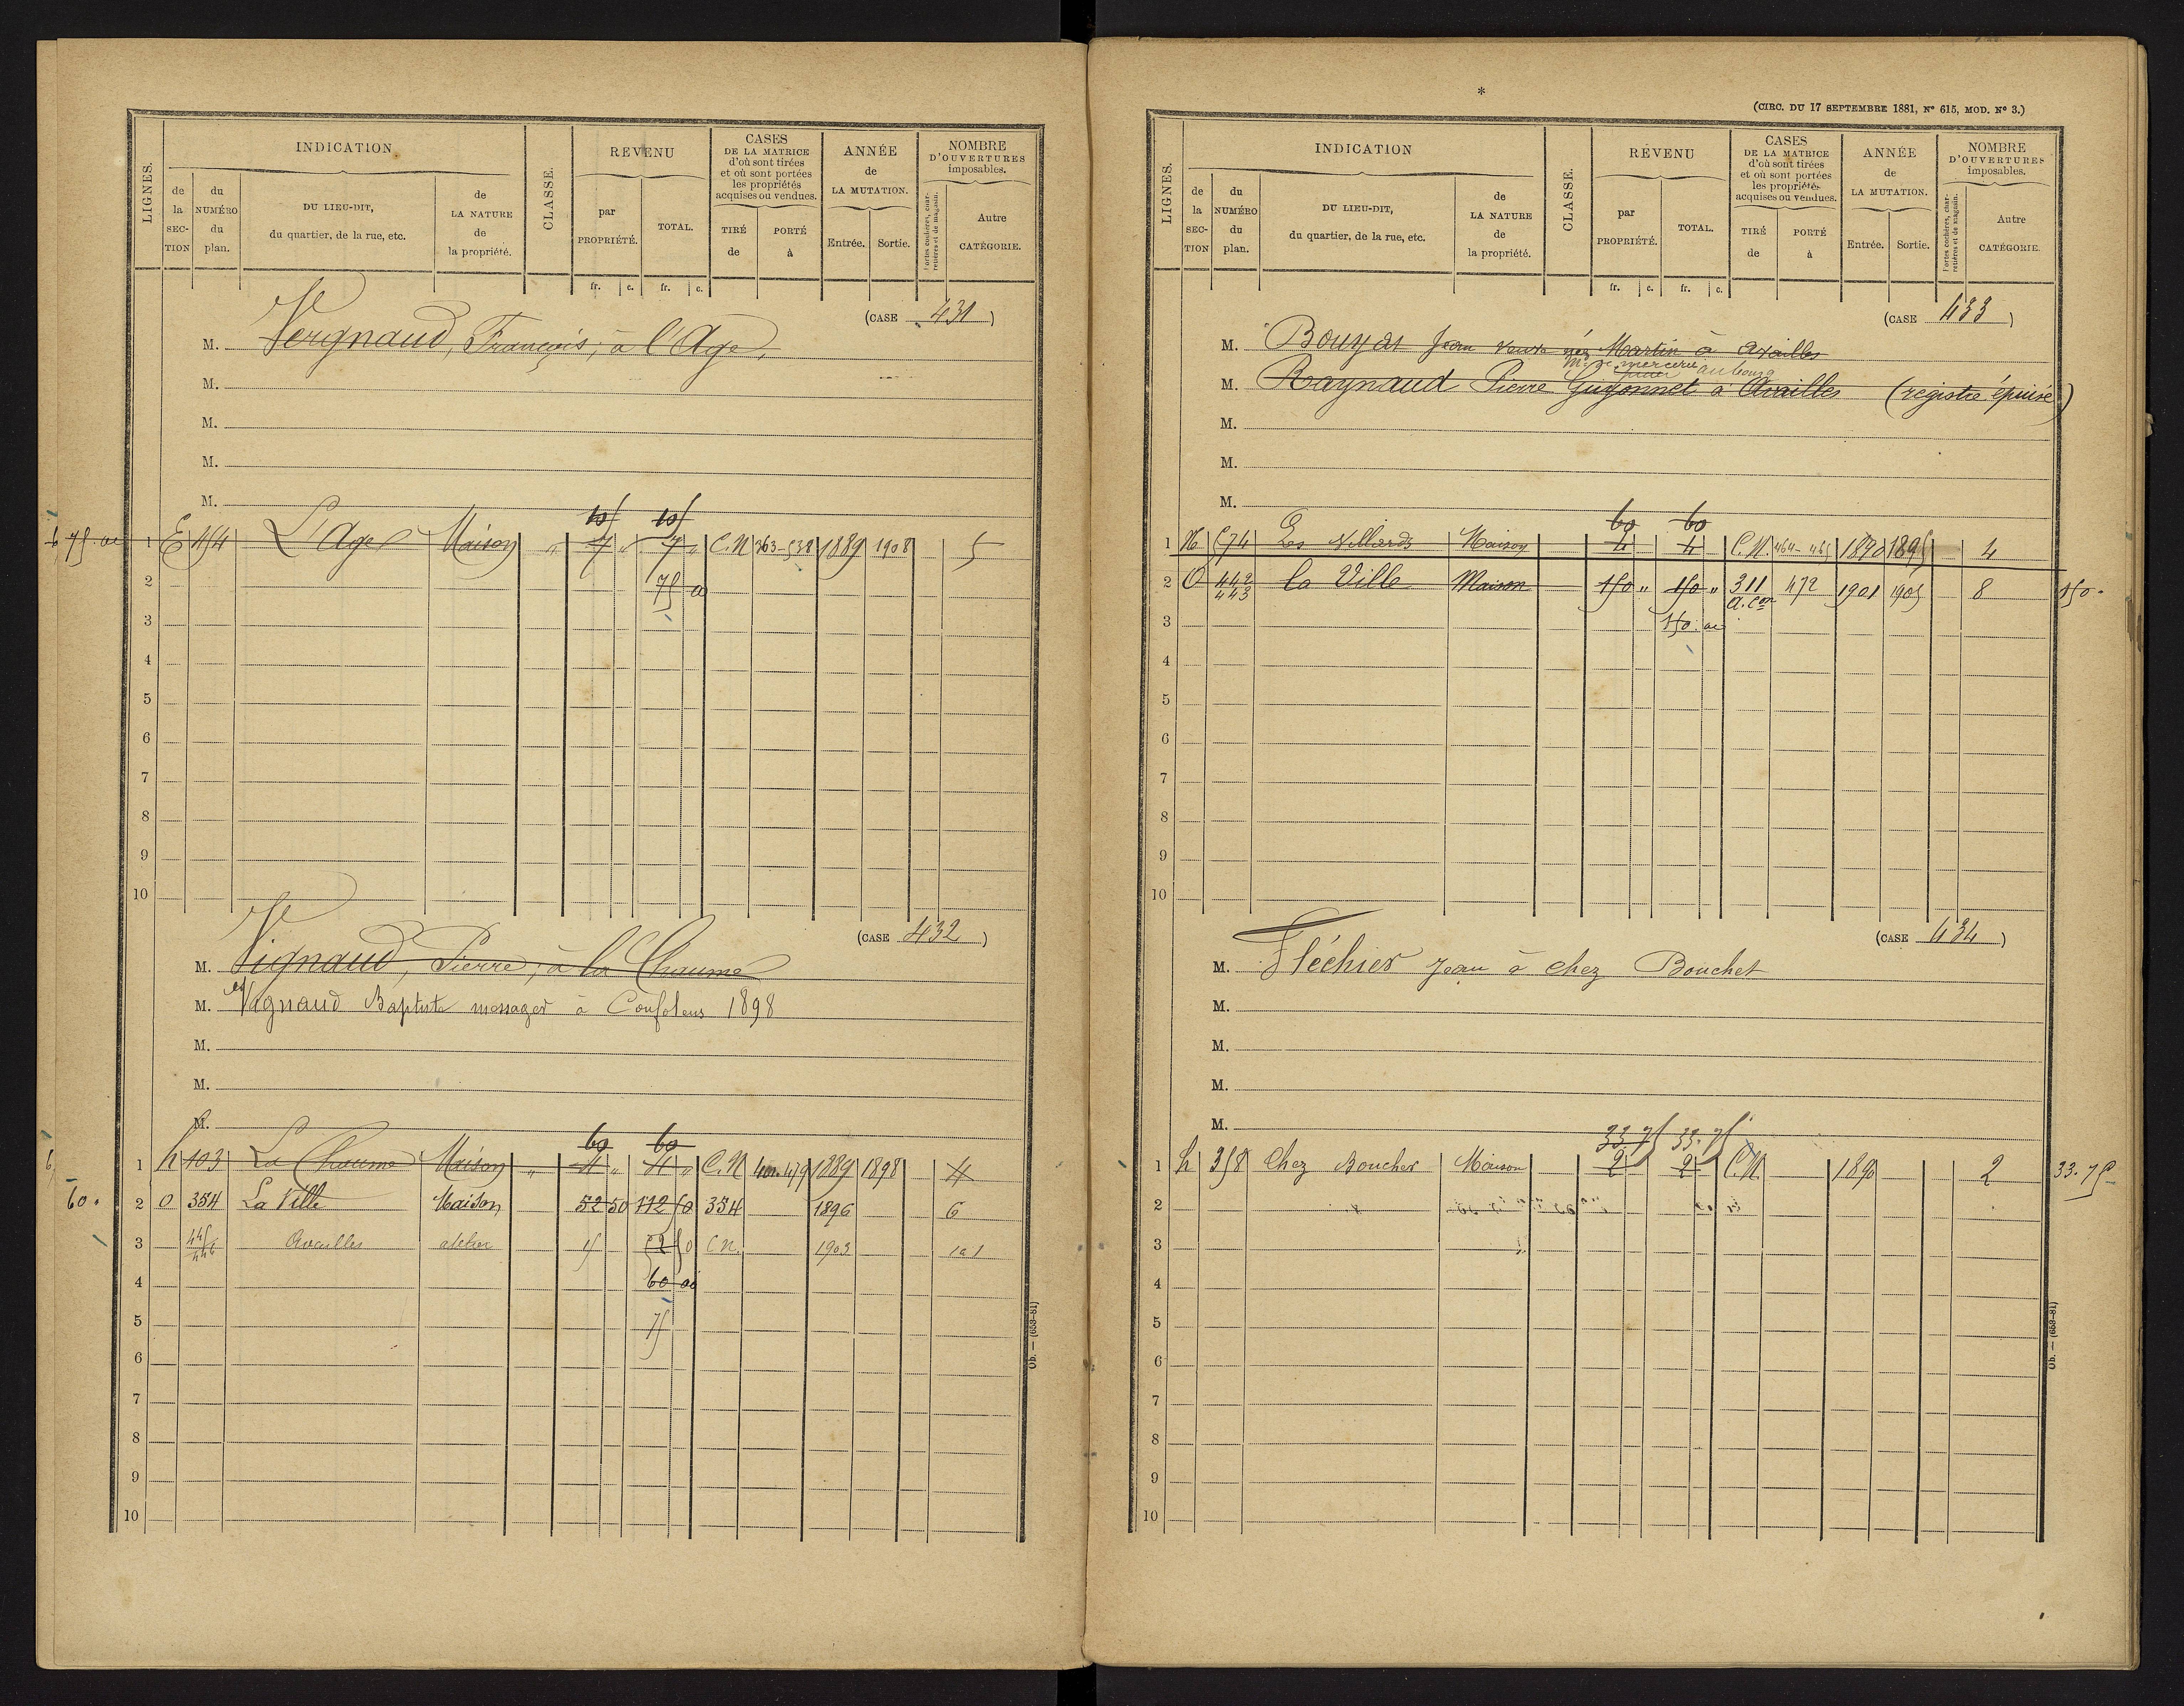 LIGNES.
INDICATION
de la SECTION
du NUMÉRO du plan.
DU LIEU-DIT, du quartier, de la rue, etc.
de LA NATURE de la propriété.
CLASSE.
REVENU
par PROPRIÉTÉ.
TOTAL.
fr. c. fr. c.
CASES DE LA MATRICE d'où sont tirées et où sont portées les propriétés acquises ou vendues.
TIRÉ de
PORTÉ à
ANNÉE de LA MUTATION.
Entrée.
Sortie.
NOMBRE D'OUVERTURES imposables.
Portes cochères, charretières et de magasin.
Autre CATÉGORIE.
(CASE 431)
M. Vergnaud, François, à l'Age,
M.
M.
M.
M.
75
1 E 154 L'Age Maison " 7 " 7 " C.N 363-538 1889 1908 5
2 75
3
4
5
6
7
8
9
10
(CASE 432)
M. Vignaud, Pierre, à la Chaume
M. Vignaud Baptiste messager à Confolens 1898
M.
M.
M.
60 60
1 h 103 La Chaume Maison " 4 " 4 " C.N 479 1889 1898 4
60.
2 O 354 La Ville Maison 52 50 112 50 354 1896 6
3 445 446 Availles atelier 15 52 50 C.N. 1903 1 a 1
4 60
5 75
6
7
8
9
10
Ob. — (653-81)
*
(CIRC. DU 17 SEPTEMBRE 1881, N° 615, MOD. N° 3.)
LIGNES.
INDICATION
de la SECTION
du NUMÉRO du plan.
DU LIEU-DIT, du quartier, de la rue, etc.
de LA NATURE de la propriété.
CLASSE.
REVENU
par PROPRIÉTÉ.
TOTAL.
fr. c. fr. c.
CASES DE LA MATRICE d'où sont tirées et où sont portées les propriétés acquises ou vendues.
TIRÉ de
PORTÉ à
ANNÉE de LA MUTATION.
Entrée.
Sortie.
NOMBRE D'OUVERTURES imposables.
Portes cochères, charretières et de magasin.
Autre CATÉGORIE.
(CASE 433)
M. Bouyat Jean veuve née Martin à Availles
mercerie au bourg
M. Raynaud Pierre Guyonnet à Availles (registre épuisé)
M.
M.
M.
60 60
1 574 Les Villards Maison 4 4 C.N. 464-465 1890 1895 4
2 O 442 443 La Ville Maison 150 " 150 " 311 472 1901 1905 8 150.
3 150
4
5
6
7
8
9
10
(CASE 434)
M. Fléchier Jean à chez Bouchet
M.
M.
M.
M.
33.75 33.75
1 h 358 Chez Boucher Maison 2 2 C.N. 1890 2 33.75
2
3
4
5
6
7
8
9
10
Ob. — (653-81)